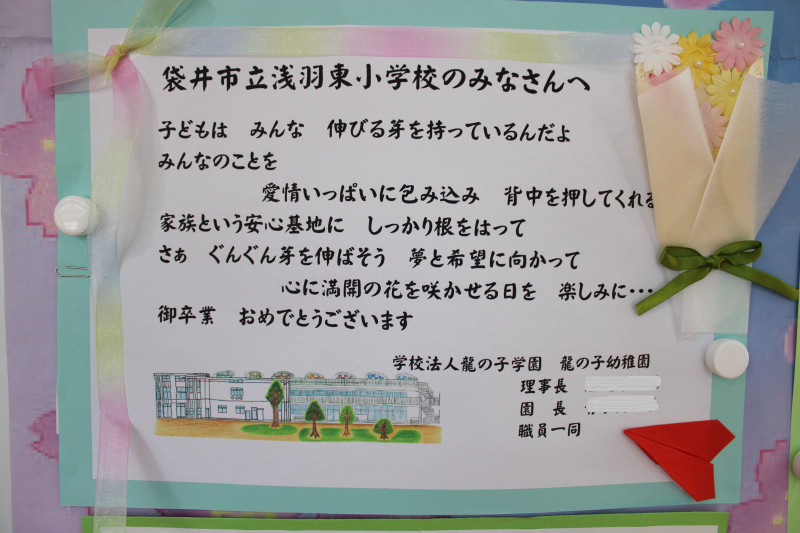 袋井市立浅羽東小学校のみなさんへ
子どもは　みんな　伸びる芽を持っているんだよ
みんなのことを
愛情いっぱいに包み込み　背中を押してくれる
家族という安心基地に　しっかり根をはって
さぁ　ぐんぐん芽を伸ばそう　夢と希望に向かって
心に満開の花を咲かせる日を　楽しみに・・・
御卒業　おめでとうございます
学校法人龍の子学園　龍の子幼稚園
理事長
園　長
職員一同